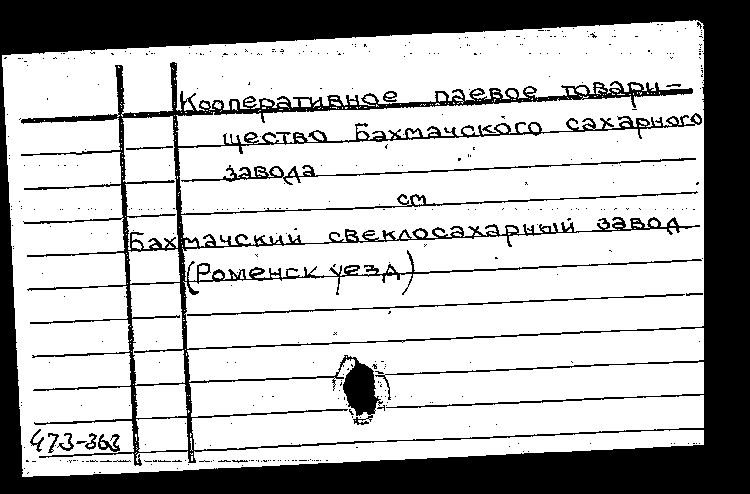 Кооперативное паевое товари-
щество Бахмачского сахарного
завода
см
Бахмачский свеклосахарный завод
(Роменск уезд)
473-363